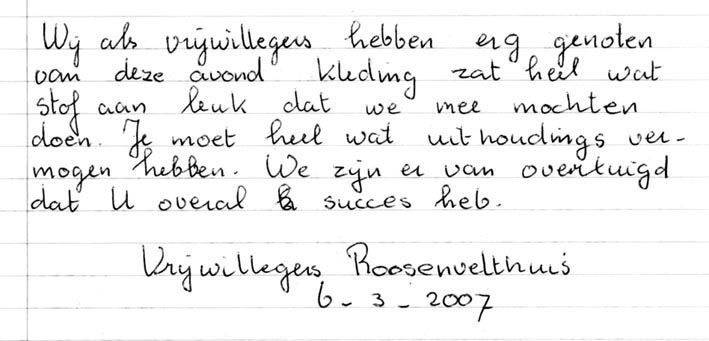 Wij als vrijwillegers hebben erg genoten
van deze avond kleding zat heel wat
stof aan leuk dat we mee mochten
doen. Je moet heel wat uithoudings ver-
mogen hebben. We zijn er van overtuigd
dat U overal succes heb.
Vrijwillegers Roosenvelthuis
6 - 3 - 2007